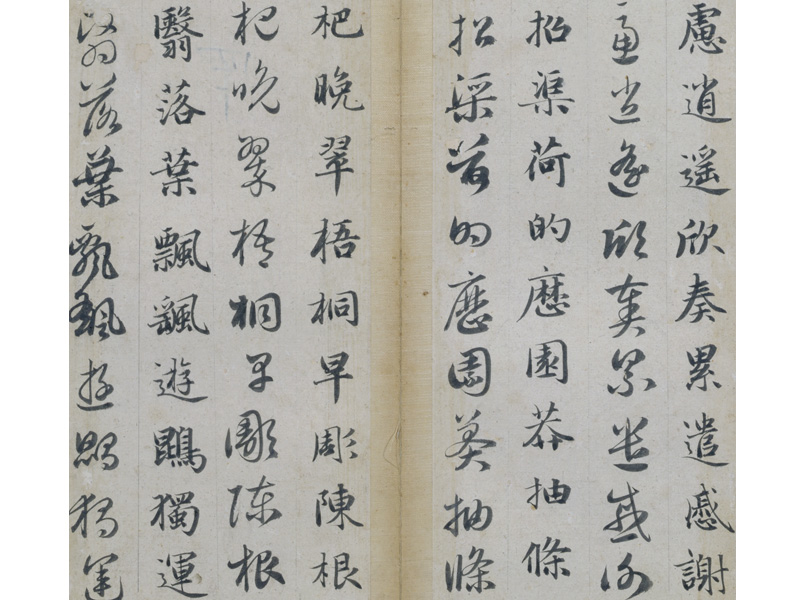 慮逍遥欣奏累遣慼謝
慮逍遥欣奏累遣慼謝
招渠荷的歷園莽抽條
招渠荷的歷園莽抽條
杷晚翠梧桐早彫陳根
杷晚翠梧桐早彫陳根
翳落葉飄飖遊鵾獨運
翳落葉飄飖遊鵾獨運